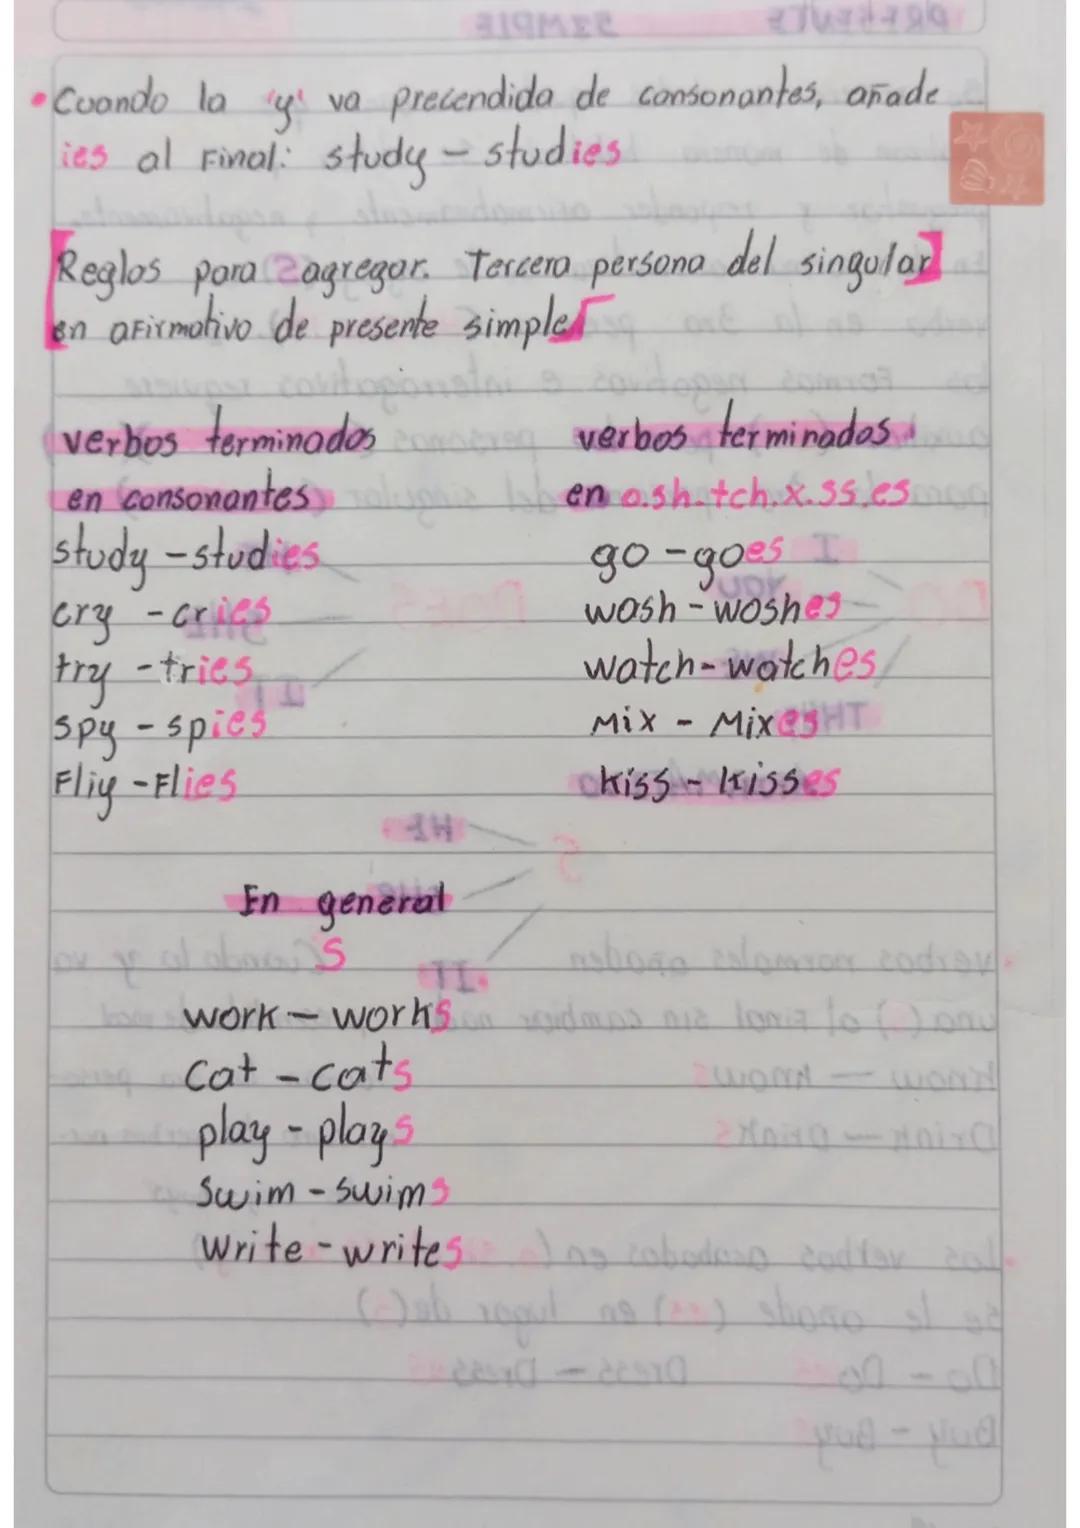 • Cuando la 'y' va precendida de consonantes, añade
ies al Final: study - studies
[Reglas para S agregar. Tercera persona del singular]
en afirmativo de presente simple
verbos terminados
en consonantes
study - studies
cry - cries
try - tries
spy - spies
Fliy - Flies
verbos terminados
en o.sh.tch.x.ss.es
go - goes
wash - washes
watch - watches
Mix - Mixes
kiss - kisses
En general
S
work - works
cat - cats
play - plays
swim - swims
write - writes